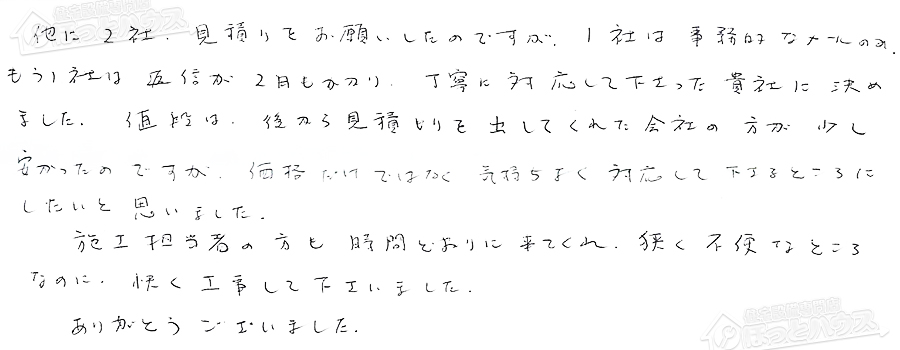 他に2社、見積りをお願いしたのですが、1社は事務的なメールのみ、
もう1社は返信が2日もかかり、丁寧に対応して下さった貴社に決め
ました。値段は、後から見積りを出してくれた会社の方が少し
安かったのですが、価格だけではなく気持ちよく対応して下さるところに
したいと思いました。
施工担当者の方も時間どおりに来てくれ、狭く不便なところ
なのに、快く工事して下さいました。
ありがとうございました。
ほっとハウス
ほっとハウス